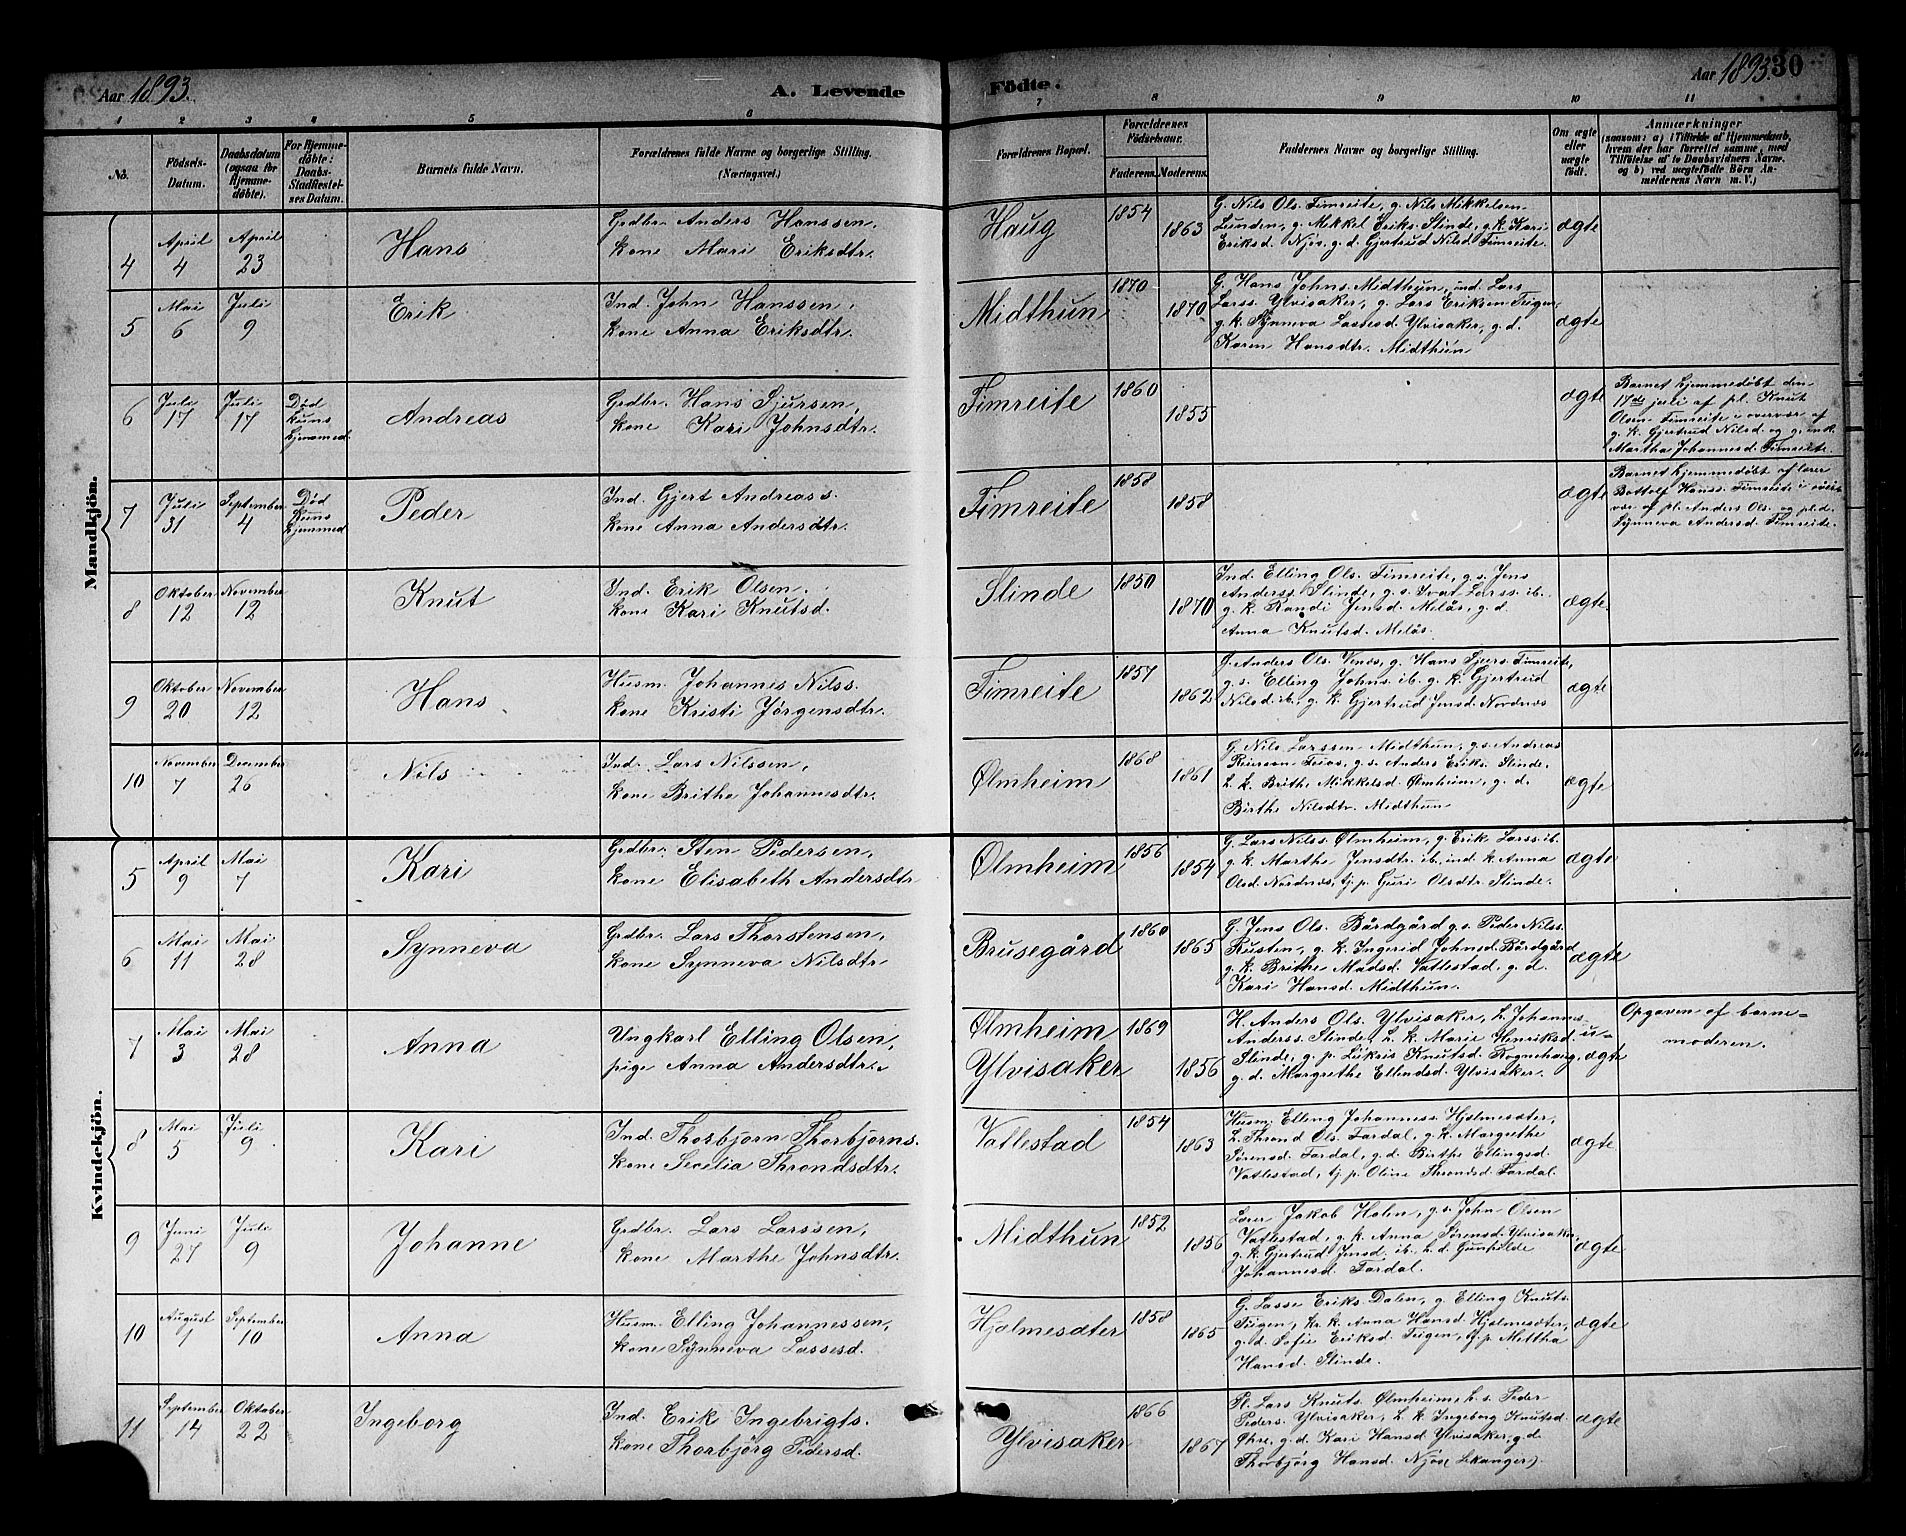 Aar 1893.
A. Levende
Födte.
Aar 1893.
30
1 2 3 4 5 6 7 8 9 10 11
No.
Födsels-
Datum.
Daabsdatum
(ogsaa for
Hjemme-
döbte).
For Hjemme-
döbte:
Daabs-
Stadfæstel-
ses Datum.
Barnets fulde Navn.
Forældrenes fulde Navne og borgerlige Stilling.
(Næringsvei.)
Forældrenes Bopæl.
Forældrenes
Födselsaar.
Faderens. Moderens.
Faddernes Navne og borgerlige Stilling.
Om ægte
eller
uægte
födt.
Anmærkninger
(saasom: a) i Tilfælde af Hjemmedaab,
hvem der har forrettet samme, med
Tilföielse af to Daabsvidners Navne.
og b) ved uægtefödte Börn An-
melderens Navn m. V.)
Mandkjön.
4
April
4
April
23
Hans
Grdbr. Anders Hanssen,
kone Mari Eriksdtr.
Haug
1854
1863
G. Nils Ols. Timreite, g. Nils Mikkelsen
Lunden, g. Mikkel Eriks. Slinde, g. k. Kari
Eriksd. Njøs, g. d. Gjertrud Nilsd. Timreite.
ægte
5
Mai
6
Juli
9
Erik
Ind. John Hanssen,
kone Anna Eriksdtr.
Midthun
1870
1870
G. Hans Johns. Midthun, ind. Lars
Larss. Ylvisaker, g. Lars Eriksen Teigen,
g. k. Synneva Lassesd. Ylvisaker, g. d.
Karen Hansdtr. Midthun
ægte
6
Juli
17
Juli
17
Død
kuns
hjemmed.
Andreas
Grdbr. Hans Sjursen,
kone Kari Johnsdtr.
Timreite
1860
1855
ægte
Barnet hjemmedøbt den
17de juli af pl. Knut
Olsen Timreite i overvær af
g. k. Gjertrud Nilsd. og g. enk.
Martha Johannesd. Timreite.
7
Juli
31
September
4
Død
kuns
hjemmed
Peder
Ind. Gjert Andreass.
kone Anna Andersdtr.
Timreite
1858
1858
ægte
Barnet hjemmedøbt af lærer
Bottolf Hanss. Timreite i over-
vær af pl. Anders Ols. og pl.d.
Synneva Andersd. Timreite.
8
Oktober
12
November
12
Knut
Ind. Erik Olsen.
kone Kari Knutsd.
Slinde
1850
1870
Ind. Elling Ols. Timreite, g. s. Jens
Anderss. Slinde, g. s. Ivar Larss. ib.
g. k. Randi Jensd. Melås, g. d.
Anna Knutsd. Melås.
ægte.
9
Oktober
20
November
12
Hans
Husm. Johannes Nilss.
kone Kristi Jørgensdtr.
Timreite
1857
1862
G. Anders Ols. Venøs, g. Hans Sjurs. Timreite,
g. s. Elling Johns. ib. g. k. Gjertrud
Nilsd. ib., g. k. Gjertrud Jensd. Nordnæs
ægte
10
November
7
December
26
Nils
Ind. Lars Nilssen,
kone Brithe Johannesdtr.
Ølmheim
1868
1861
G. Nils Larssen Midthun, g. s. Andreas
g. s. Anders Eriks. Slinde,
L. k. Brithe Mikkelsd. Ølmheim, g. d.
Birthe Nilsdtr. Midthun
ægte
Kvindekjön.
5
April
9
Mai
7
Kari
Grdbr. Sten Pedersen,
kone Elisabeth Andersdtr
Ølmheim
1856
1854
G. Lars Nils. Ølmheim, g. Erik Larss. ib.
g. k. Marthe Jensdtr. ib., ind. k. Anna
Olsd. Nordnæs, tj. p. Guri Olsdtr. Slinde.
ægte
6
Mai
11
Mai
28
Synneva
Grdbr. Lars Thorstensen,
kone Synneva Nilsdtr
Brusegård
1860
1865
G. Jens Ols. Bårdgård g. s. Peder Nils.
Rusten, g. k. Ingerid Johnsd. Bårdgård
g. k. Brithe Madsd. Vatlestad, g. d.
Kari Hansd. Midthun.
ægte
7
Mai
3
Mai
28
Anna
Ungkarl Elling Olsen,
pige Anna Andersdtr.
Ølmheim
Ylvisaker
1869
1856
H. Anders Ols. Ylvisaker, L. Johannes
Anderss. Slinde, L. k. Marie Henriksd.
Slinde, g. p. Lukris Knutsd. Rognehaug,
g. d. Margrethe Ellendsd. Ylvisaker.
u-
ægte
Opgaven af barne-
moderen.
8
Mai
5
Juli
9
Kari
Ind. Thorbjørn Thorbjørns.
kone Secelia Throndsdtr.
Vatlestad
1854
1863
Husm. Elling Johanness. Hjelmesæter,
L. Thrond Ols. Fardal, g. k. Margrethe
Sørensd. Fardal, g. d. Birthe Ellingsd.
Vatlestad, tj. p. Oline Thronds. Fardal.
ægte
9
Juni
27
Juli
9
Johanne
Grdbr. Lars Larssen,
kone Marthe Johnsdtr.
Midthun
1852
1856
Lærer Jakob Holen, g. s. John Olsen
Vatlestad, g. k. Anna Sørensd. Ylvisaker,
g. k. Gjertrud Jensd. ib. L. d. Gunhilde
Johannesd. Fardal.
ægte
10
August
1
September
10
Anna
Husm. Elling Johannessen,
kone Synneva Lassesd.
Hjelmesæter
1858
1865
G. Lasse Eriks. Dalen, g. Elling Knuts.
Teigen, hr. k. Anna Hansd. Hjelmesæter,
g. d. Sofie Eriksd. Teigen, tj. p. Mettha
Hansd. Slinde.
ægte
11
September
14
Oktober
22
Ingeborg
Ind. Erik Ingebrigts.
kone Thorbjørg Pedersd.
Ylvisaker
1866
1867
Pl. Lars Knuts. Ølmheim, L. s. Peder
Peders. Ylvisaker, L. k. Ingeborg Knutsd.
Øhre, g. d. Kari Hansd. Ylvisaker, g. d.
Thorbjørg Hansd. Njøs (Lekanger).
ægte